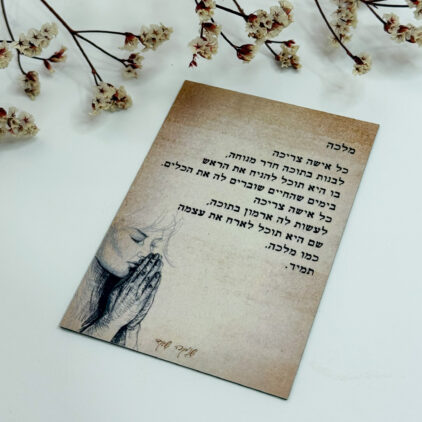 מלכה
כל אישה צריכה
לבנות בתוכה חדר מנוחה,
בו היא תוכל להניח את הראש
בימים שהחיים שוברים לה את הכלים.
כל אישה צריכה
לעשות לה ארמון בתוכה,
שם היא תוכל לארח את עצמה
כמו מלכה.
תמיד.